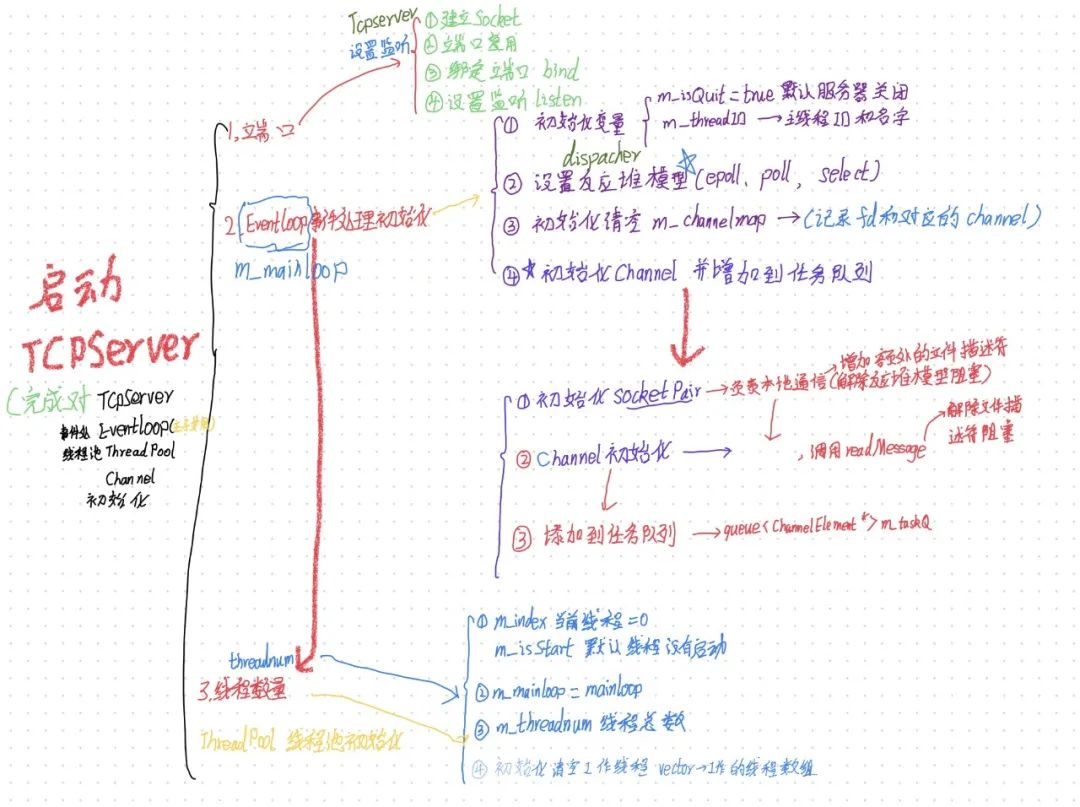 启动
TCPServer
(完成对 TCPServer
事件处 Eventloop(
线程池 ThreadPool
Channel
初始化
1.端口
Tcpserver
设置监听
①建立Socket
②端口复用
③绑定端口 bind
④设置监听 listen
2.Eventloop事件处理初始化
m_mainloop
① 初始化变量
m_isQuit = true 默认服务器关闭
m_threadID → 主线程ID和名字
dispacher
② 设置反应堆模型(epoll、poll, select)
③ 初始化清空 m_channelmap → (记录fd和对应的channel)
④★初始化Channel 并增加到任务队列
① 初始化 Socket Pair → 负责本地通信(解除反应堆模型阻塞)
增加额外的文件描述符
② Channel初始化 → ,调用readMessage
解除文件描
述符阻塞
③ 添加到任务队列 → queue<ChannelElement*>m_taskQ
threadnum
3.线程数量
ThreadPool 线程池初始化
① m_index 当前线程=0
m_isStart 默认线程没有启动
② m_mainloop = mainloop
③ m_threadnum 线程总数
④ 初始化清空工作线程 vector→工作的线程数组